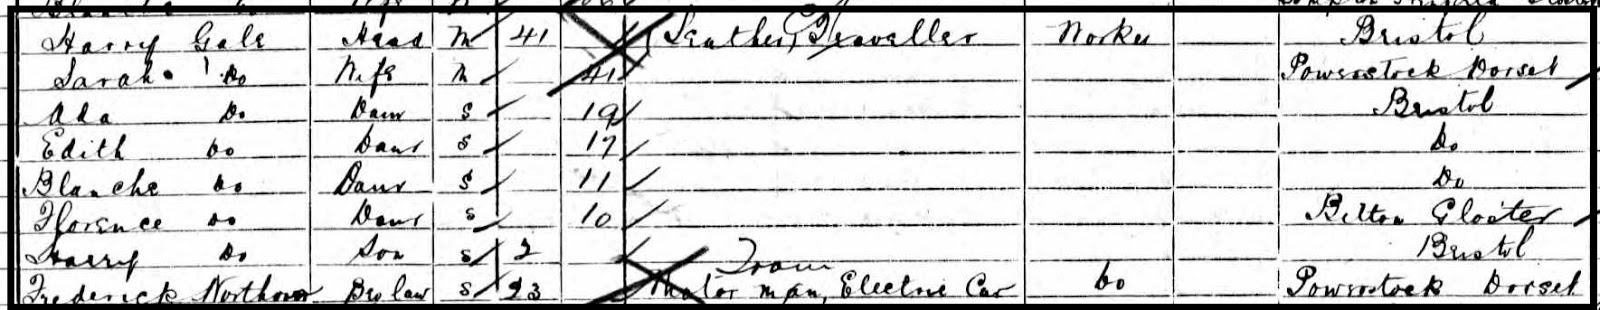 Blanche Do Wife
Harry Gale Head M 41 Leather Traveller Worker Bristol
Sarah Do Wife M 41 Powerstock Dorset
Ada Do Daur S 19 Bristol
Edith Do Daur S 17 Do
Blanche Do Daur S 11 Do
Florence Do Daur S 10 Bitton Gloster
Harry Do Son S 2 Bristol
Tram
Frederick Northover Bro law S 23 Motor man, Electric Car Do Powerstock Dorset